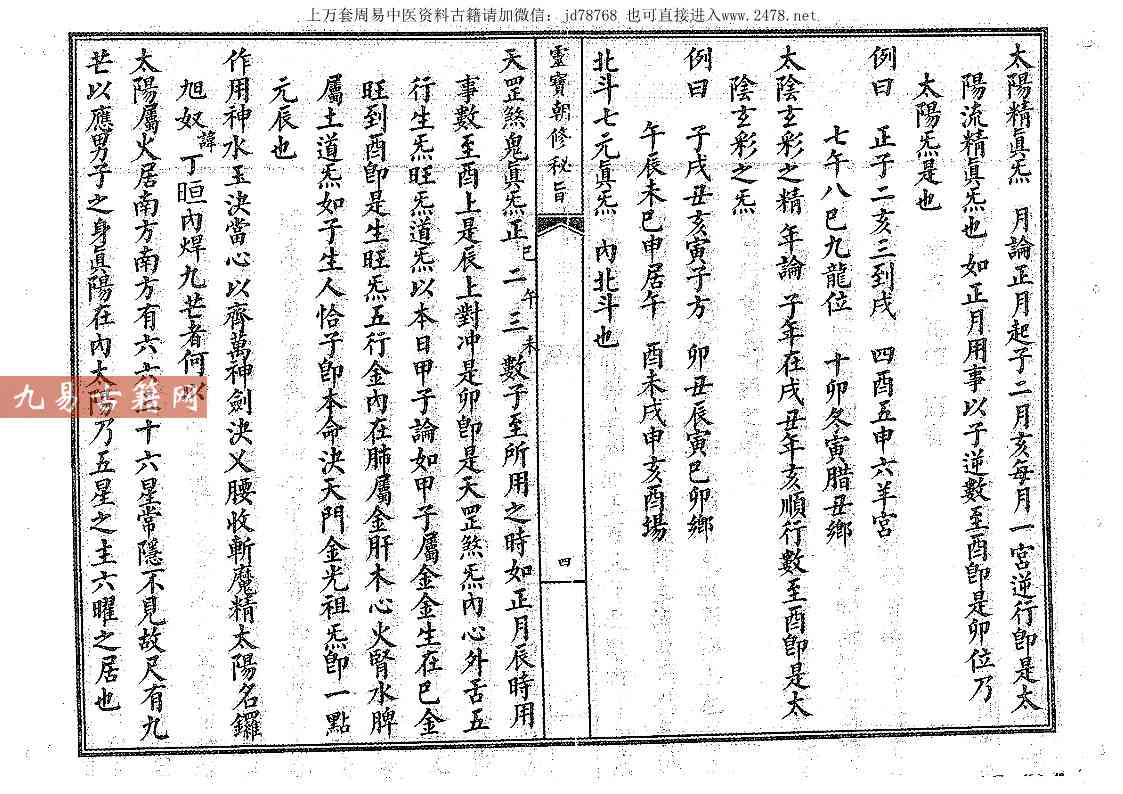 上万套周易中医资料古籍请加微信：jd78768 也可直接进入www.2478.net
太陽精眞炁 月論正月起子二月亥每月一宮逆行卽是太
陽流精眞炁也 如正月用事以子逆數至酉卽是卯位乃
太陽炁是也
例曰 正子二亥三到戌 四酉五申六羊宮
七午八巳九龍位 十卯冬寅腊丑鄉
太陰玄彩之精 年論 子年在戌丑年亥順行數至酉卽是太
陰玄彩之炁
例曰 子戌丑亥寅子方 卯丑辰寅巳卯鄉
午辰未巳申居午 酉未戌申亥酉場
北斗七元眞炁 內北斗也
靈寶朝修秘旨
四
天罡煞鬼眞炁正巳二午三未數子至所用之時如正月辰時用
事數至酉上是辰上對冲是卯卽是天罡煞炁內心外舌五
行生炁旺炁道炁以本日甲子論如甲子屬金金生在巳金
旺到酉卽是生旺炁五行金內在肺屬金肝木心火腎水脾
屬土道炁如子生人恰子卽本命決天門金光祖炁卽一點
元辰也
作用神水玉決當心以齊萬神劍決乂腰收斬魔精太陽名鑼
旭奴諱丁晅內焊九芒者何以
太陽屬火居南方南方有六六十六星常隱不見故尺有九
芒以應男子之身眞陽在內太陽乃五星之主六曜之居也
九易古籍网